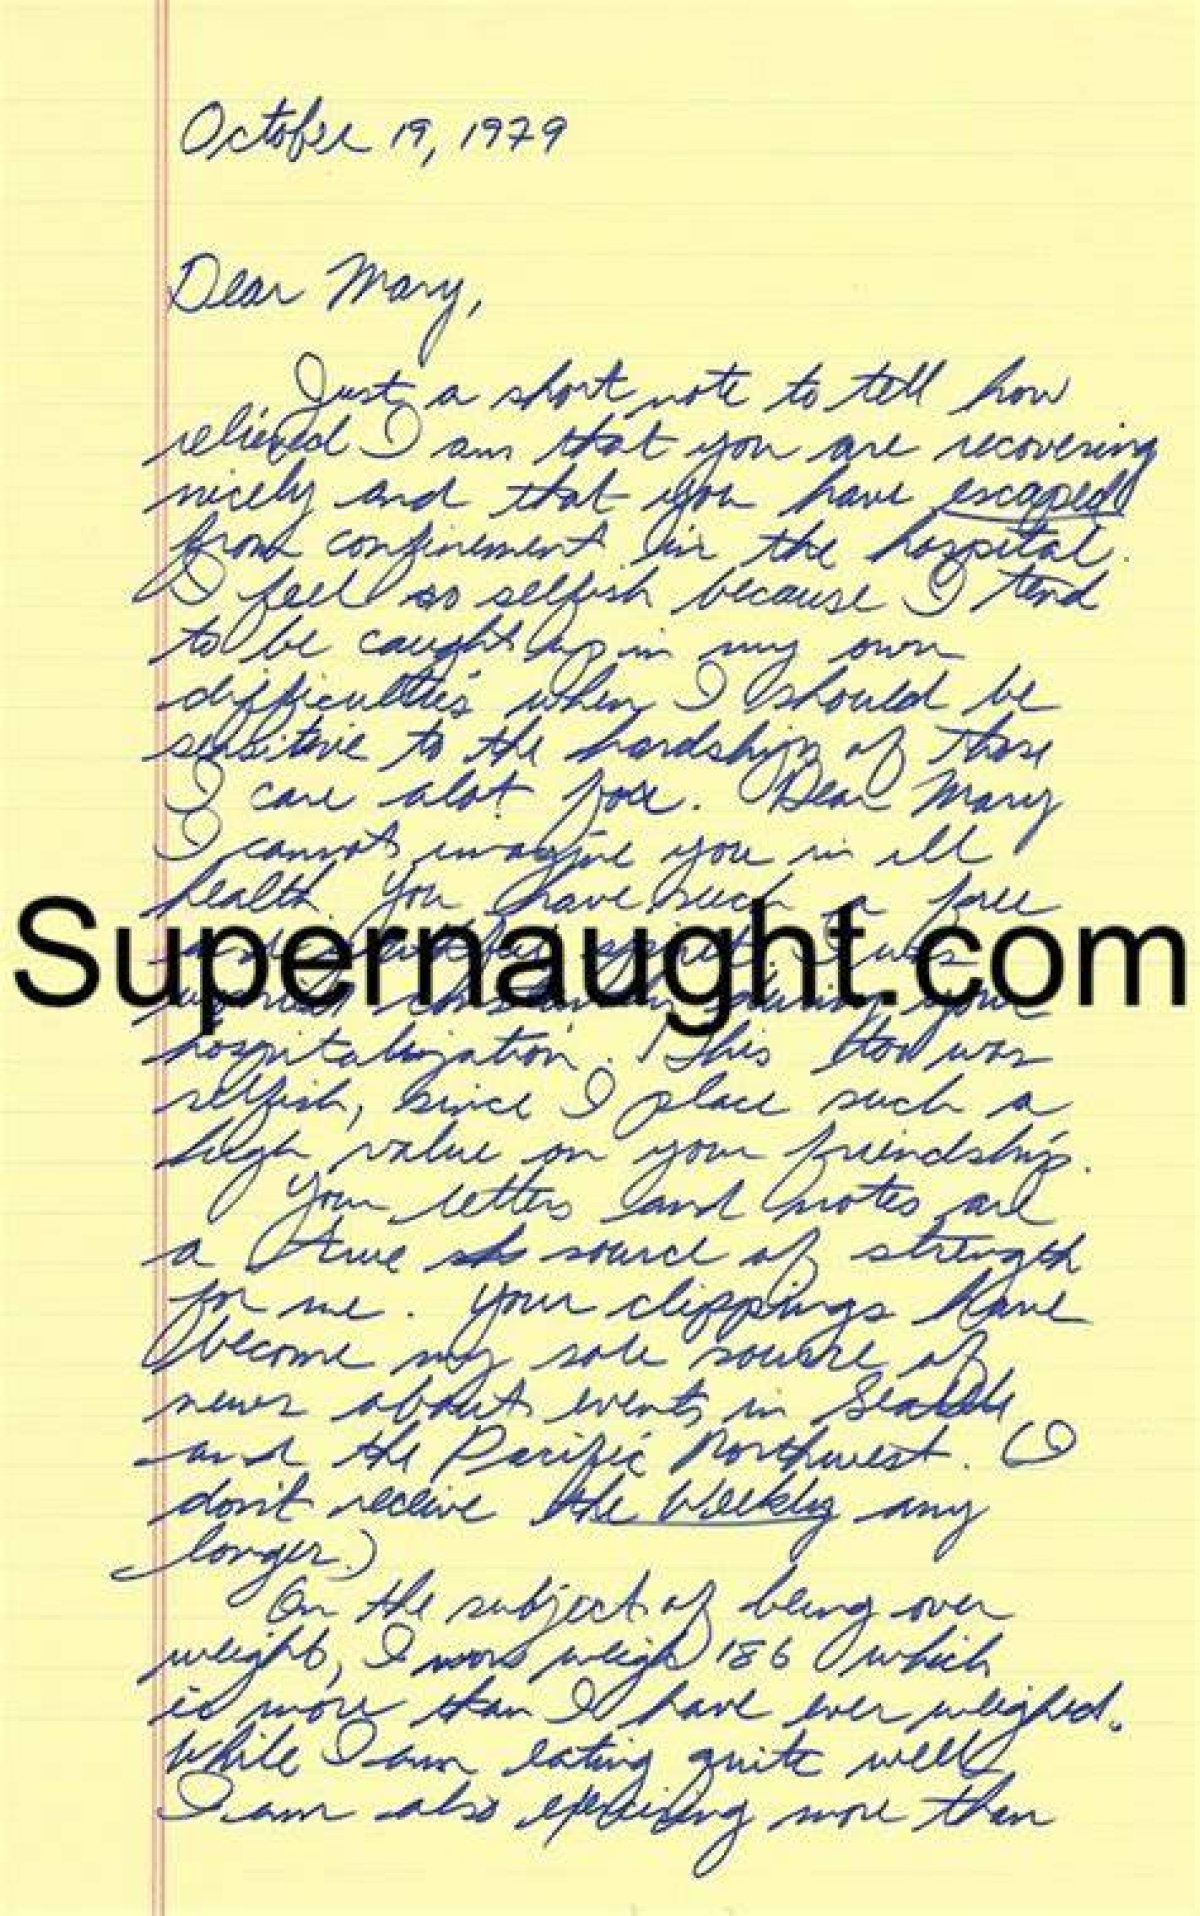 October 19, 1979
Dear Mary,
Just a short note to tell how
relieved I am that you are recovering
nicely and that you have escaped
from confinement in the hospital.
I feel so selfish because I tend
to be caught up in my own
difficulties when I should be
sensitive to the hardships of those
I care alot for. Dear Mary
I cannot imagine you in ill
health. You have such a free
Supernaught.com
and spirit. I was
worried constantly during your
hospitalization. This too was
selfish, since I place such a
high value on your friendship.
Your letters and notes are
a true source of strength
for me. Your clippings have
become my sole source of
news about events in Seattle
and the Pacific Northwest. (I
don't receive the Weekly any
longer.)
On the subject of being over
weight, I now weigh 186 which
is more than I have ever weighed.
While I am eating quite well
I am also exercising more than